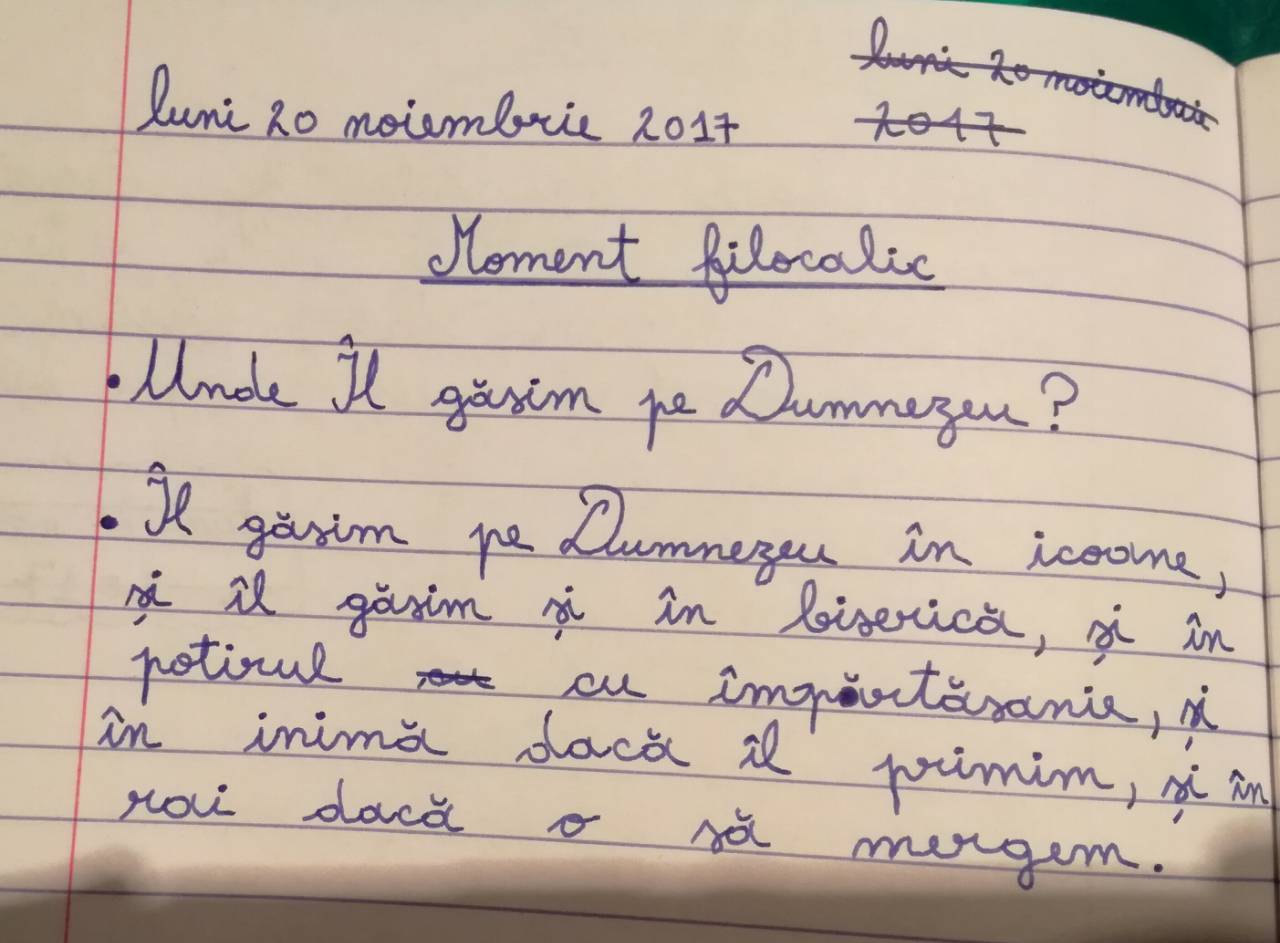 luni 20 noiembrie
luni 20 noiembrie 2017 2017
Moment filocalic
• Unde Îl găsim pe Dumnezeu?
• Îl găsim pe Dumnezeu în icoane,
și îl găsim și în biserică, și în
potirul cu împărtăsanie, și
în inimă dacă îl primim, și în
rai dacă o să mergem.